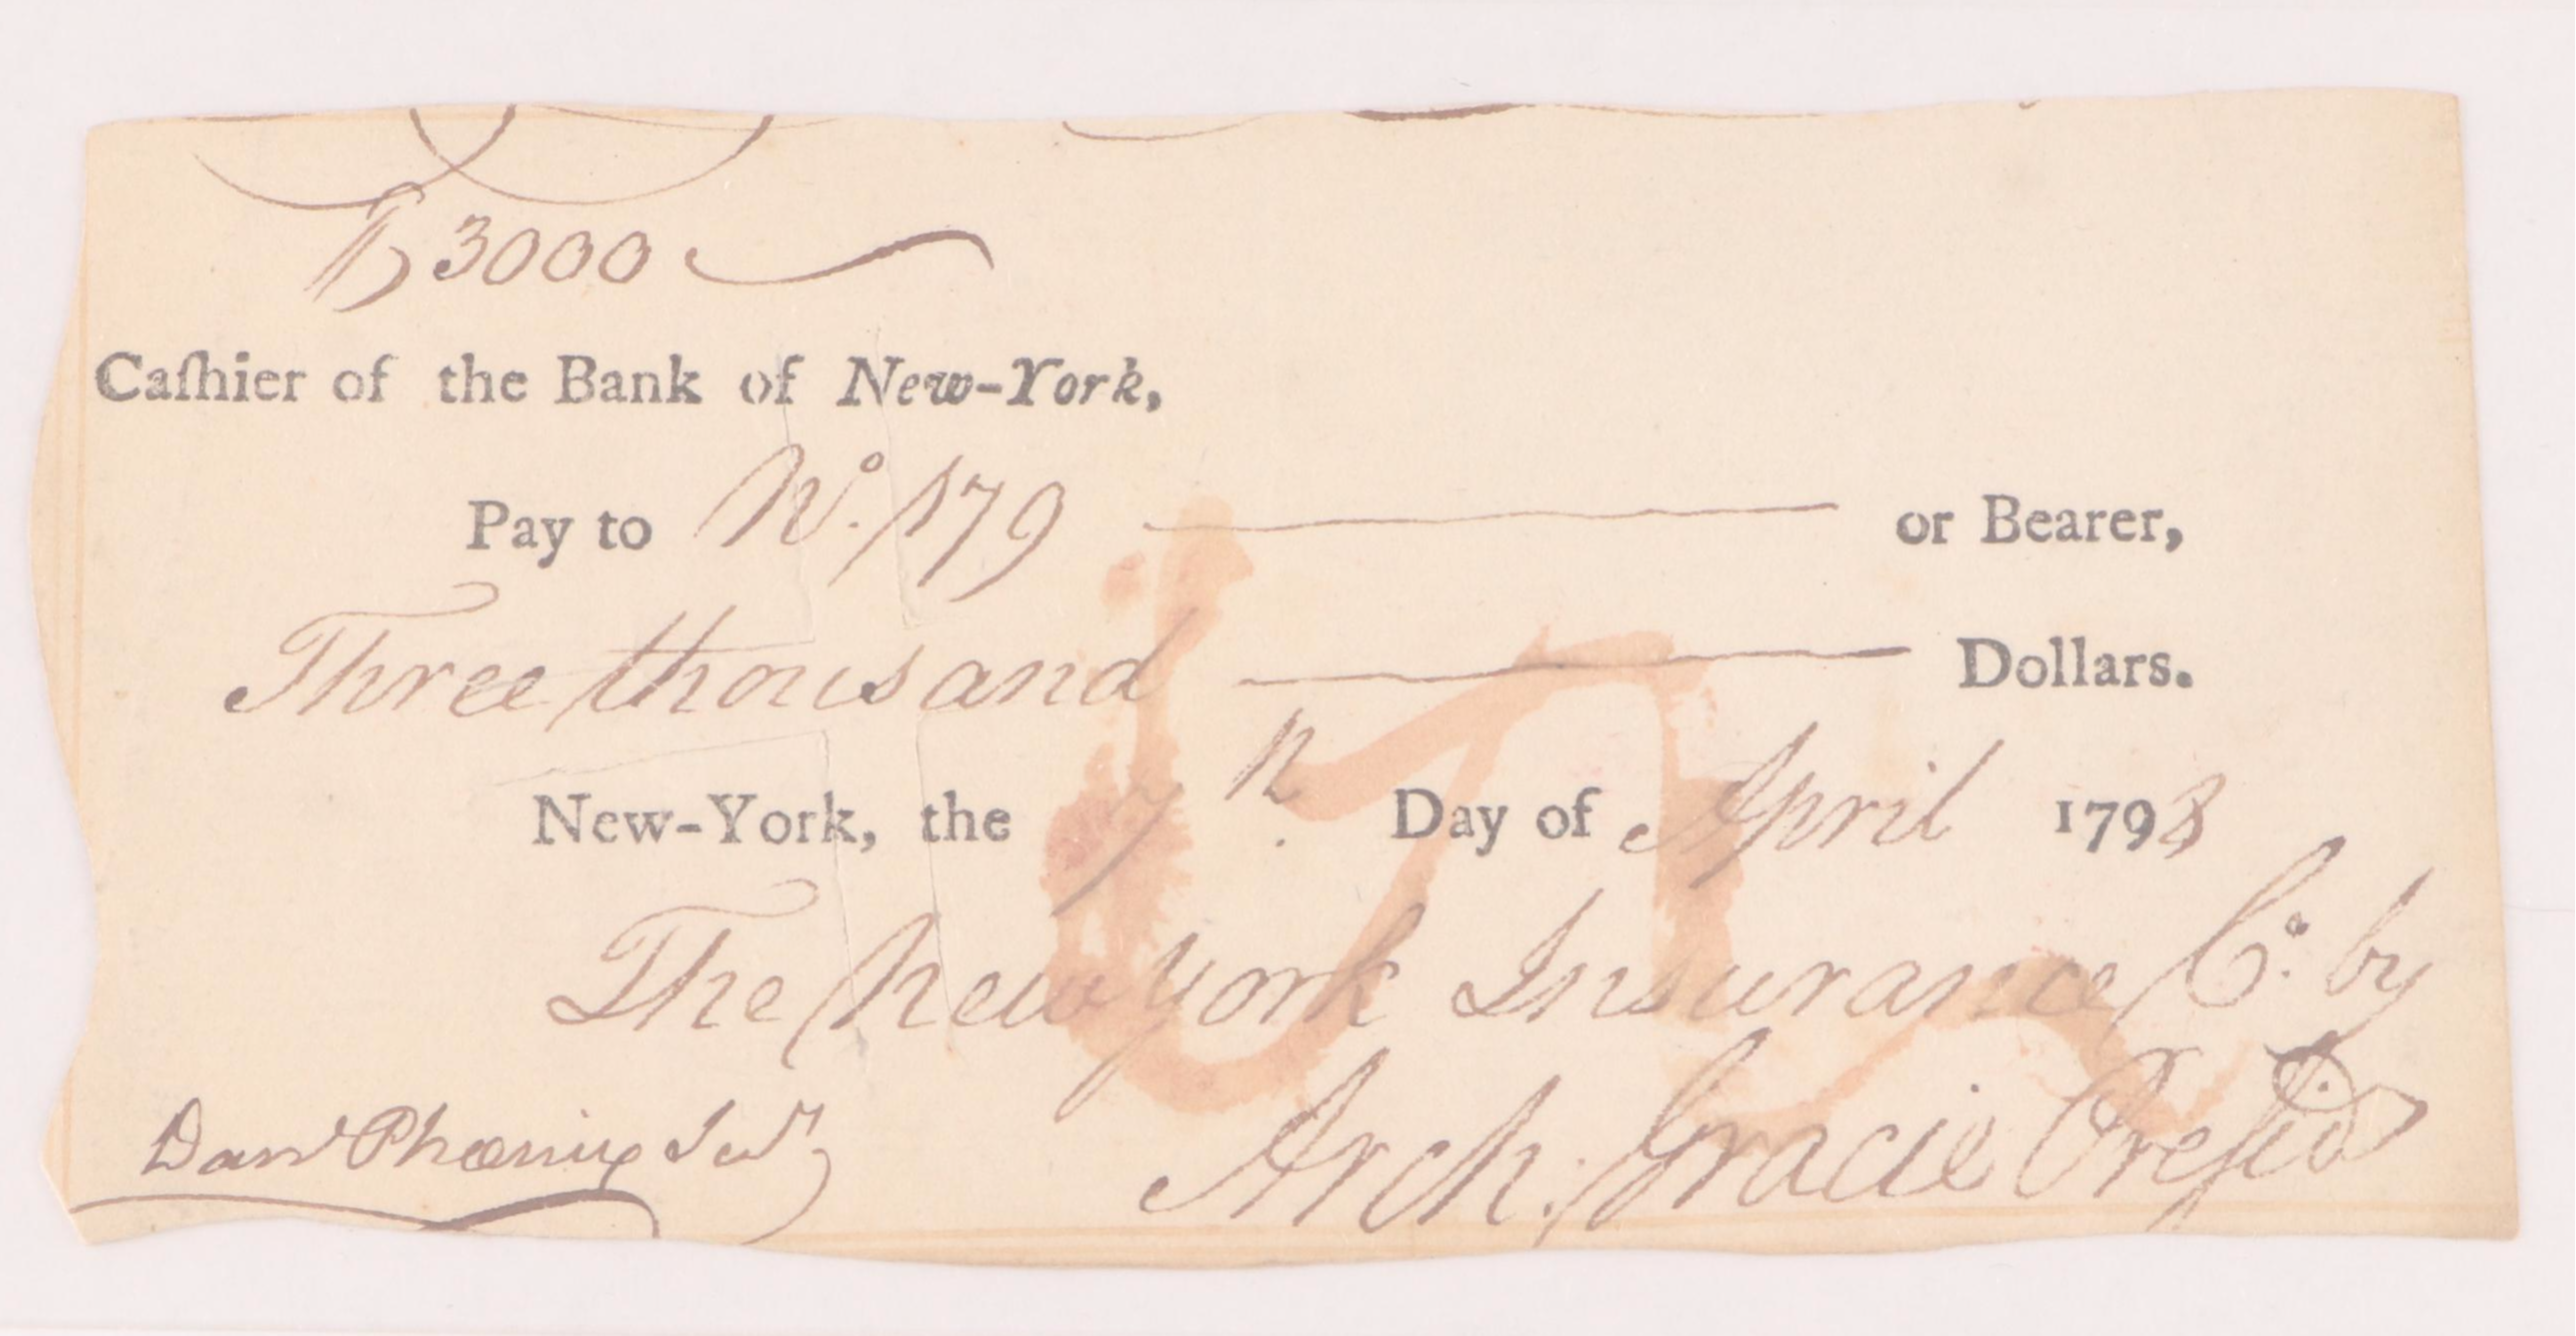 D 3000
Caſhier of the Bank of New-York,
Pay to No. 179 or Bearer,
Three thousand Dollars.
New-York, the 7th Day of April 1798
The New York Insurance Co. by
Arch. Gracie Preſid
Danl Phœnix Secy